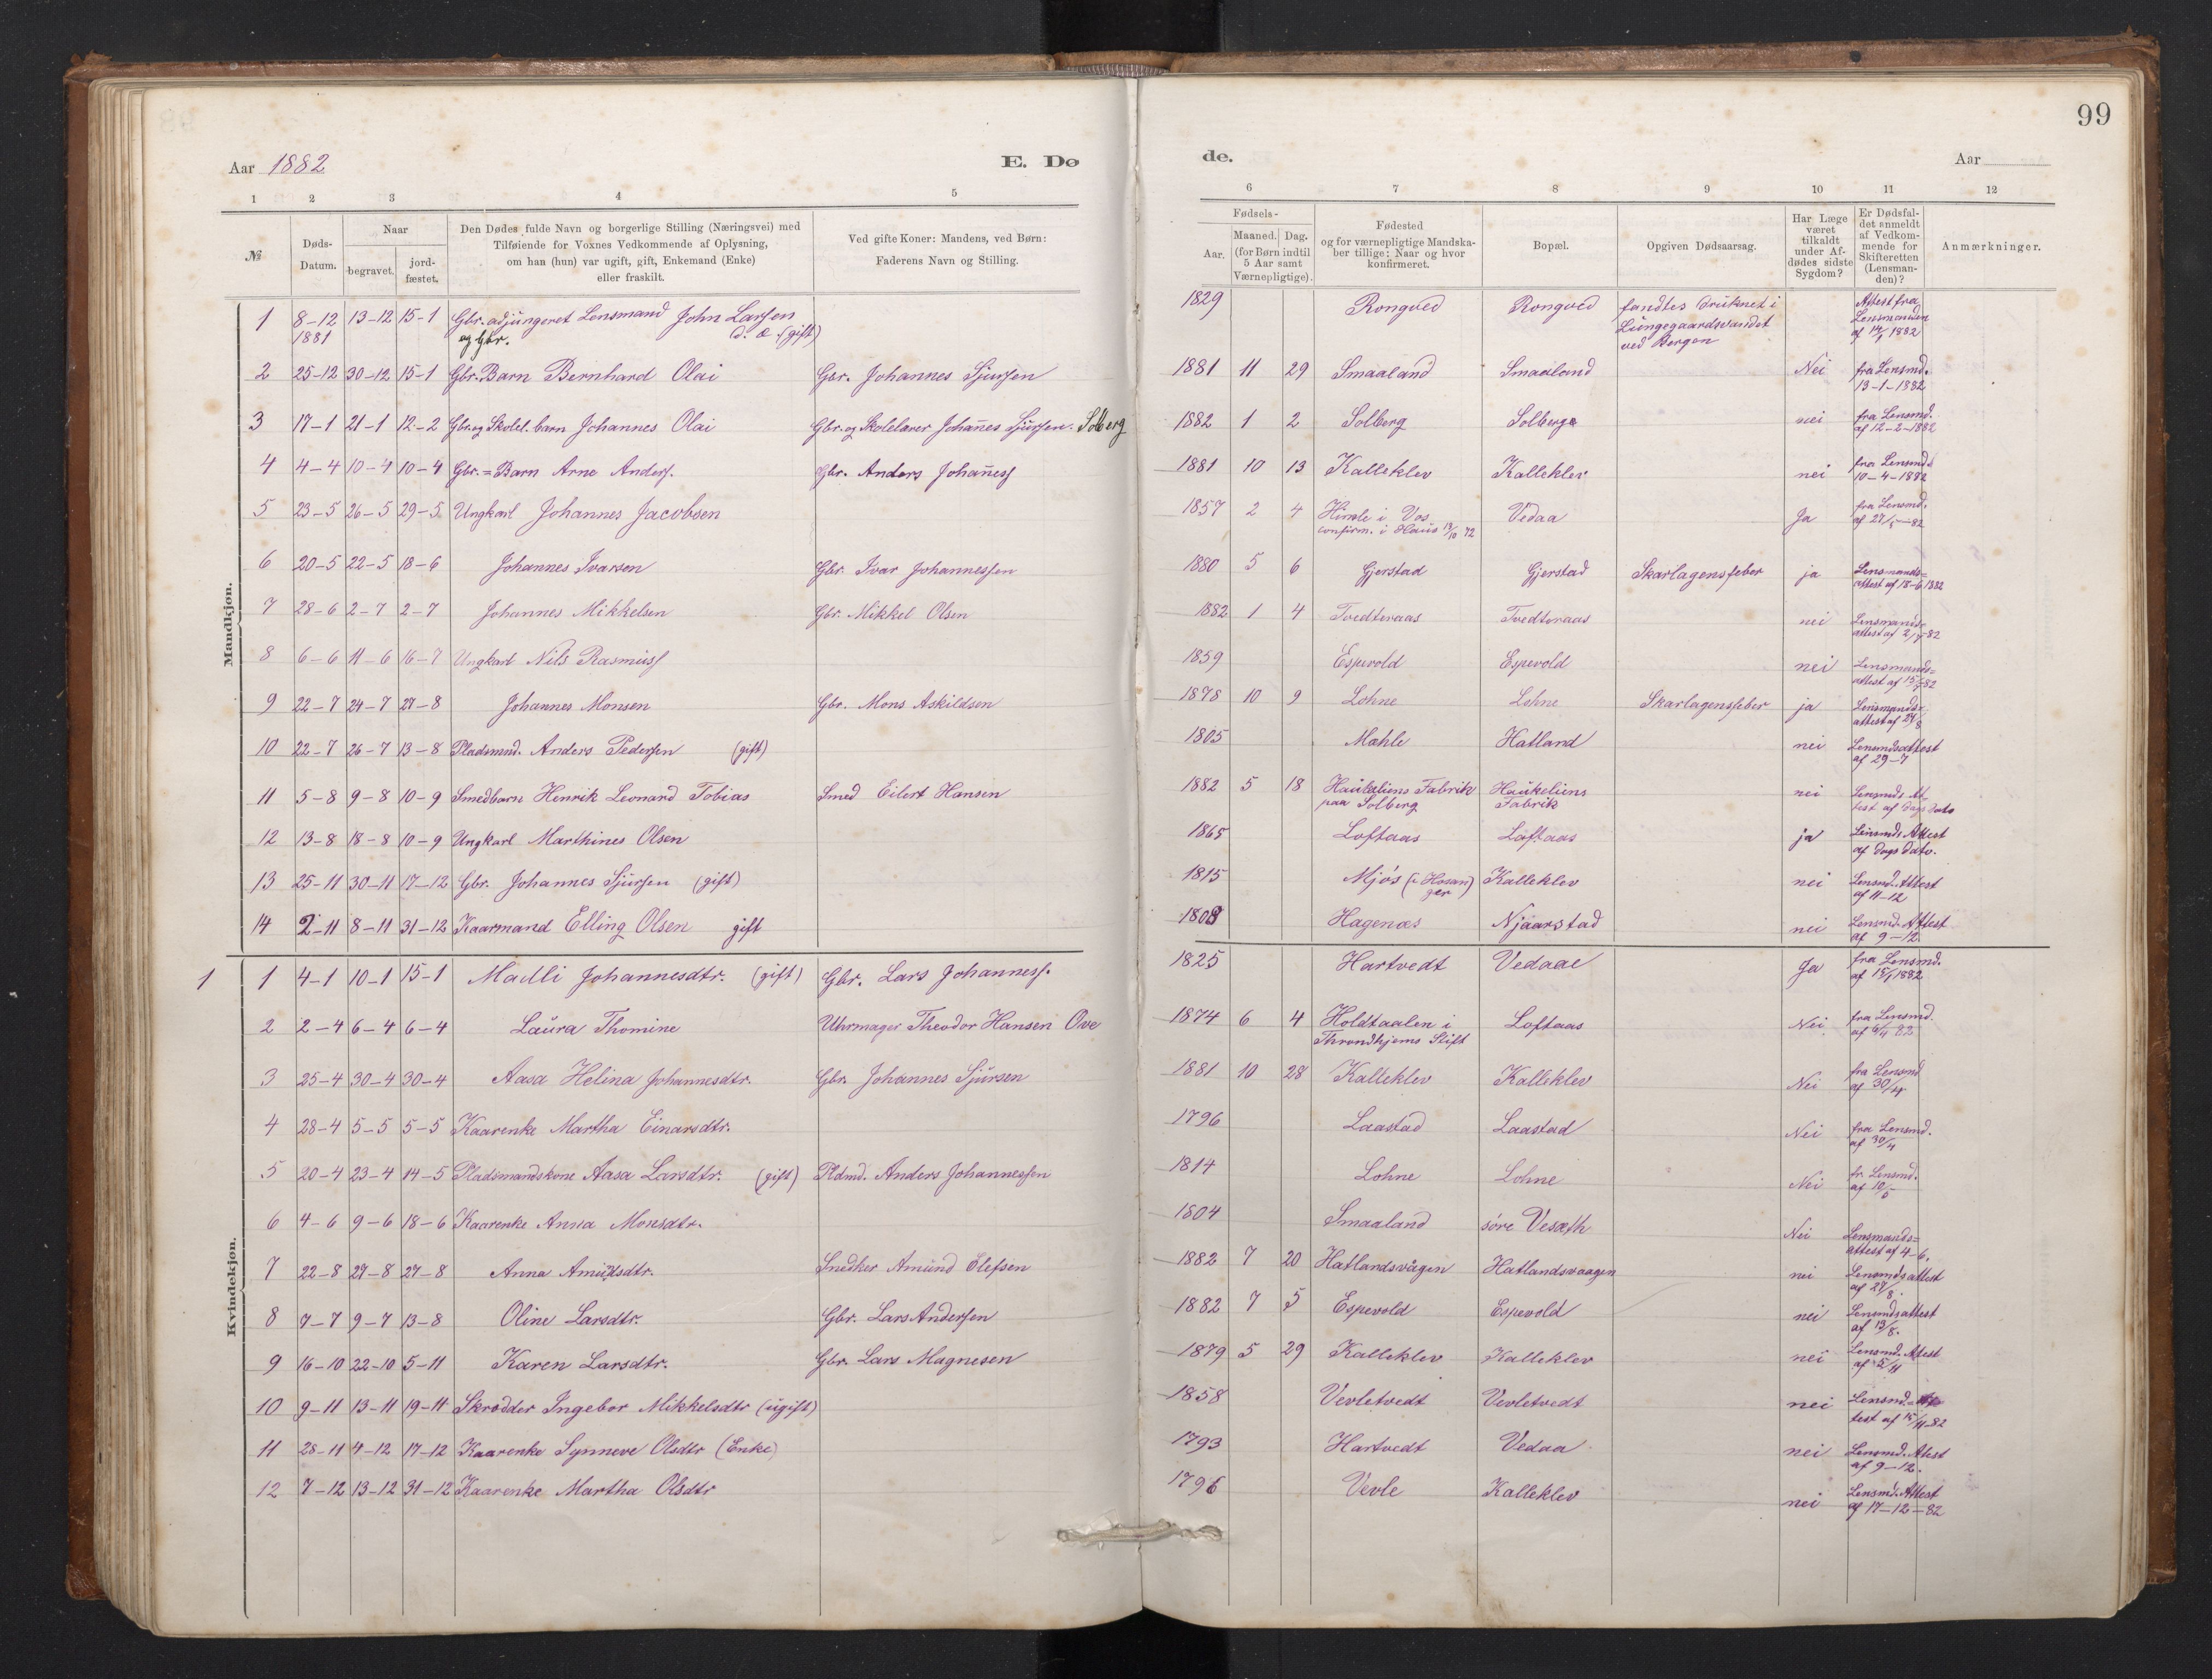 99
Aar 1882
E. Dø
de.
Aar
1 2 3 4 5
6 7 8 9 10 11 12
№
Døds-
Datum.
Naar
begravet.
jord-
fæstet.
Den Dødes fulde Navn og borgerlige Stilling (Næringsvei) med
Tilføiende for Voxnes Vedkommende af Oplysning,
om han (hun) var ugift, gift, Enkemand (Enke)
eller fraskilt.
Ved gifte Koner: Mandens, ved Børn:
Faderens Navn og Stilling.
Fødsels-
Aar.
Maaned. Dag.
(for Børn indtil
5 Aar samt
Værnepligtige).
Fødested
og for værnepligtige Mandska-
ber tillige: Naar og hvor
konfirmeret.
Bopæl.
Opgiven Dødsaarsag.
Har Læge
været
tilkaldt
under Af-
dødes sidste
Sygdom?
Er Dødsfal-
det anmeldt
af Vedkom-
mende for
Skifteretten
(Lensman-
den)?
Anmærkninger.
Mandkjøn.
1 8-12 13-12 15-1 Gbr. adjungeret Lensmand John Larsen 1829 Rongved Rongved fandtes druknet i Attest fra
1881 og Gbr. d. æ. (gift) Lungegaardsvandet Lensmanden
ved Bergen af 14/1 1882
2 25-12 30-12 15-1 Gbr. Barn Bernhard Olai Gbr. Johannes Sjursen 1881 11 29 Smaaland Smaaland Nei fra Lensmd.
13-1-1882
3 17-1 21-1 12-2 Gbr. og Skolel. barn Johannes Olai Gbr. og Skolelærer Johañes Sjursen Solberg 1882 1 2 Solberg Solberg nei fra Lensmd.
af 12-2-1882
4 4-4 10-4 10-4 Gbr.=Barn Arne Anders. Gbr. Anders Johañes 1881 10 13 Kalleklev Kalleklev nei fra Lensmd.
10-4-1882
5 23-5 26-5 29-5 Ungkarl Johannes Jacobsen 1857 2 4 Himle i Vos Vedaa Ja fra Lensmd.
confirm. i Haus 13/10 72 af 27/5-82
6 20-5 22-5 18-6 Johannes Ivarsen Gbr. Ivar Johannessen 1880 5 6 Gjerstad Gjerstad Skarlagensfeber ja Lensmands=
attest af 18-6 1882
7 28-6 2-7 2-7 Johannes Mikkelsen Gbr. Mikkel Olsen 1882 1 4 Tvedteraas Tvedteraas nei Lensmands=
attest af 2/7-82
8 6-6 11-6 16-7 Ungkarl Nils Rasmus 1859 Espevold Espevold nei Lensmands=
attest af 15/7-82
9 22-7 24-7 27-8 Johannes Monsen Gbr. Mons Askildsen 1878 10 9 Lohne Lohne Skarlagensfeber ja Lensmands=
attest af 27/8
10 22-7 26-7 13-8 Pladsmnd. Anders Pedersen (gift) 1805 Mæhle Hatland nei Lensmdsattest
af 29-7
11 5-8 9-8 10-9 Smedbarn Henrik Leonard Tobias Smed Eilert Hansen 1882 5 18 Haukeliens Fabrik Haukeliens nei Lensmds At
paa Solberg Fabrik test af Dags Dato
12 13-8 18-8 10-9 Ungkarl Marthines Olsen 1865 Loftaas Loftaas ja Lensmds Attest
af Dags Dato.
13 25-11 30-11 17-12 Gbr. Johannes Sjursen (gift) 1815 Mjøs (i Hosan Kalleklev nei Lensmd. Attest
ger af 11-12
14 2-11 8-11 31-12 Kaarmand Elling Olsen gift Hagenæs Njaarstad nei Lensmd. Attest
af 9-12
Kvindekjøn.
1 1 4-1 10-1 15-1 Madli Johannesdtr. (gift) Gbr. Lars Johanness. 1825 Hartvedt Vedaae Ja fra Lensmd.
af 15/1 1882
2 2-4 6-4 6-4 Laura Thomine Uhrmager Theodor Hansen Ove 1874 6 4 Holdtaalen i Loftaas Nei fra Lensmd.
Throndhjems Stift af 6/4 82
3 25-4 30-4 30-4 Aasa Helina Johannesdtr. Gbr. Johannes Sjursen 1881 10 28 Kalleklev Kalleklev Nei fra Lensmd
af 30/4.
4 28-4 5-5 5-5 Kaarenke Martha Einarsdtr. 1796 Laastad Laastad Nei fra Lensmd.
af 30/4
5 20-4 23-4 14-5 Pladsmandskone Aasa Larsdtr. (gift) Pldmd. Anders Johannessen 1814 Lohne Lohne Nei fr. Lensmd.
af 10/5
6 4-6 9-6 18-6 Kaarenke Anna Monsdtr. 1804 Smaaland søre Vesæth Nei Lensmands=
attest af 4-6.
7 22-8 27-8 27-8 Anna Amundsdtr. Snedker Amund Olefsen 1882 7 20 Hatlandsvågen Hatlandsvaagen nei Lensmdsattest
af 27/8.
8 7-7 9-7 13-8 Oline Larsdtr. Gbr. Lars Andersen 1882 7 5 Espevold Espevold nei Lensmdsattest
af 13/8.
9 16-10 22-10 5-11 Karen Larsdtr. Gbr. Lars Magnesen 1879 5 29 Kalleklev Kalleklev nei Lensmd. Attest
af 5/11
10 9-11 13-11 19-11 Skrædder Ingebor Mikkelsdtr (ugift) 1858 Vevletvedt Vevletvedt nei Lensmd.
test af 15/11-82
11 28-11 4-12 17-12 Kaarenke Synneve Olsdtr (Enke) 1793 Hartvedt Vedaa nei Lensmd. Attest
af 9-12.
12 7-12 13-12 31-12 Kaarenke Martha Olsdtr 1796 Vevle Kalleklev nei Lensmd. Attest
af 17-12-82